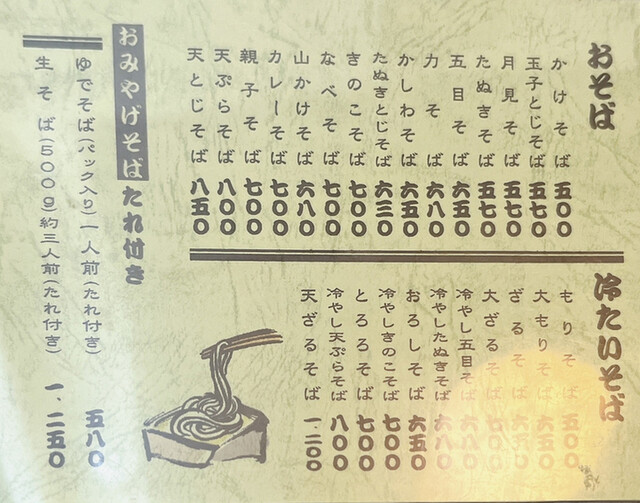 おそば
かけそば 五〇〇
玉子とじそば 五七〇
月見そば 五七〇
たぬきそば 五七〇
五目そば 六五〇
力そば 六八〇
かしわそば 六五〇
たぬきとじそば 六三〇
きのこそば 七〇〇
なべそば 七〇〇
山かけそば 六八〇
カレーそば 七〇〇
親子そば 七〇〇
天ぷらそば 八〇〇
天とじそば 八五〇
冷たいそば
もりそば 五〇〇
大もりそば 六五〇
ざるそば
大ざるそば
冷やし五目そば
冷やしたぬきそば
おろしそば 六五〇
冷やしきのこそば 七〇〇
とろろそば 七〇〇
冷やし天ぷらそば 八〇〇
天ざるそば 一、二〇〇
おみやげそば たれ付き
ゆでそば(パック入り)一人前(たれ付き) 五八〇
生そば(500g)約三人前(たれ付き) 一、二五〇